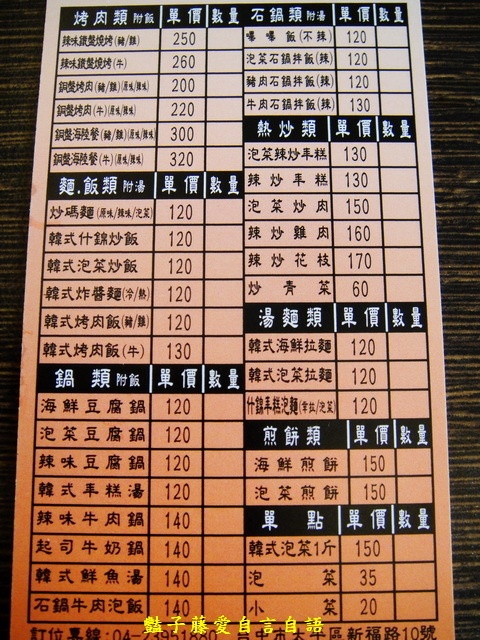 烤肉類 附飯 單價 數量
辣味鐵盤燒烤(豬/雞) 250
辣味鐵盤燒烤(牛) 260
銅盤烤肉(豬/雞)原味/辣味 200
銅盤烤肉(牛)原味/辣味 220
銅盤海陸餐(豬/雞)原味/辣味 300
銅盤海陸餐(牛)原味/辣味 320
麵.飯類 附湯 單價 數量
炒碼麵(原味/辣味/泡菜) 120
韓式什錦炒飯 120
韓式泡菜炒飯 120
韓式炸醬麵(冷/熱) 120
韓式烤肉飯(豬/雞) 120
韓式烤肉飯(牛) 130
鍋類 附飯 單價 數量
海鮮豆腐鍋 120
泡菜豆腐鍋 120
辣味豆腐鍋 120
韓式年糕湯 120
辣味牛肉鍋 140
起司牛奶鍋 140
韓式鮮魚湯 140
石鍋牛肉泡飯 140
石鍋類 附湯 單價 數量
嗶嗶飯(不辣) 120
泡菜石鍋拌飯(辣) 120
豬肉石鍋拌飯(辣) 120
牛肉石鍋拌飯(辣) 130
熱炒類 單價 數量
泡菜辣炒年糕 130
辣炒年糕 130
泡菜炒肉 150
辣炒雞肉 160
辣炒花枝 170
炒青菜 60
湯麵類 單價 數量
韓式海鮮拉麵 120
韓式泡菜拉麵 120
什錦年糕泡麵(韋拉/泡菜) 120
煎餅類 單價 數量
海鮮煎餅 150
泡菜煎餅 150
單點 單價 數量
韓式泡菜1斤 150
泡菜 35
小菜 20
訂位專線:04- 台中市太平區新福路10號
豔子藤愛自言自語